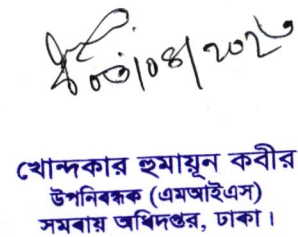 খোন্দকার হুমায়ূন কবীর
উপনিবন্ধক (এমআইএস)
সমবায় অধিদপ্তর, ঢাকা।